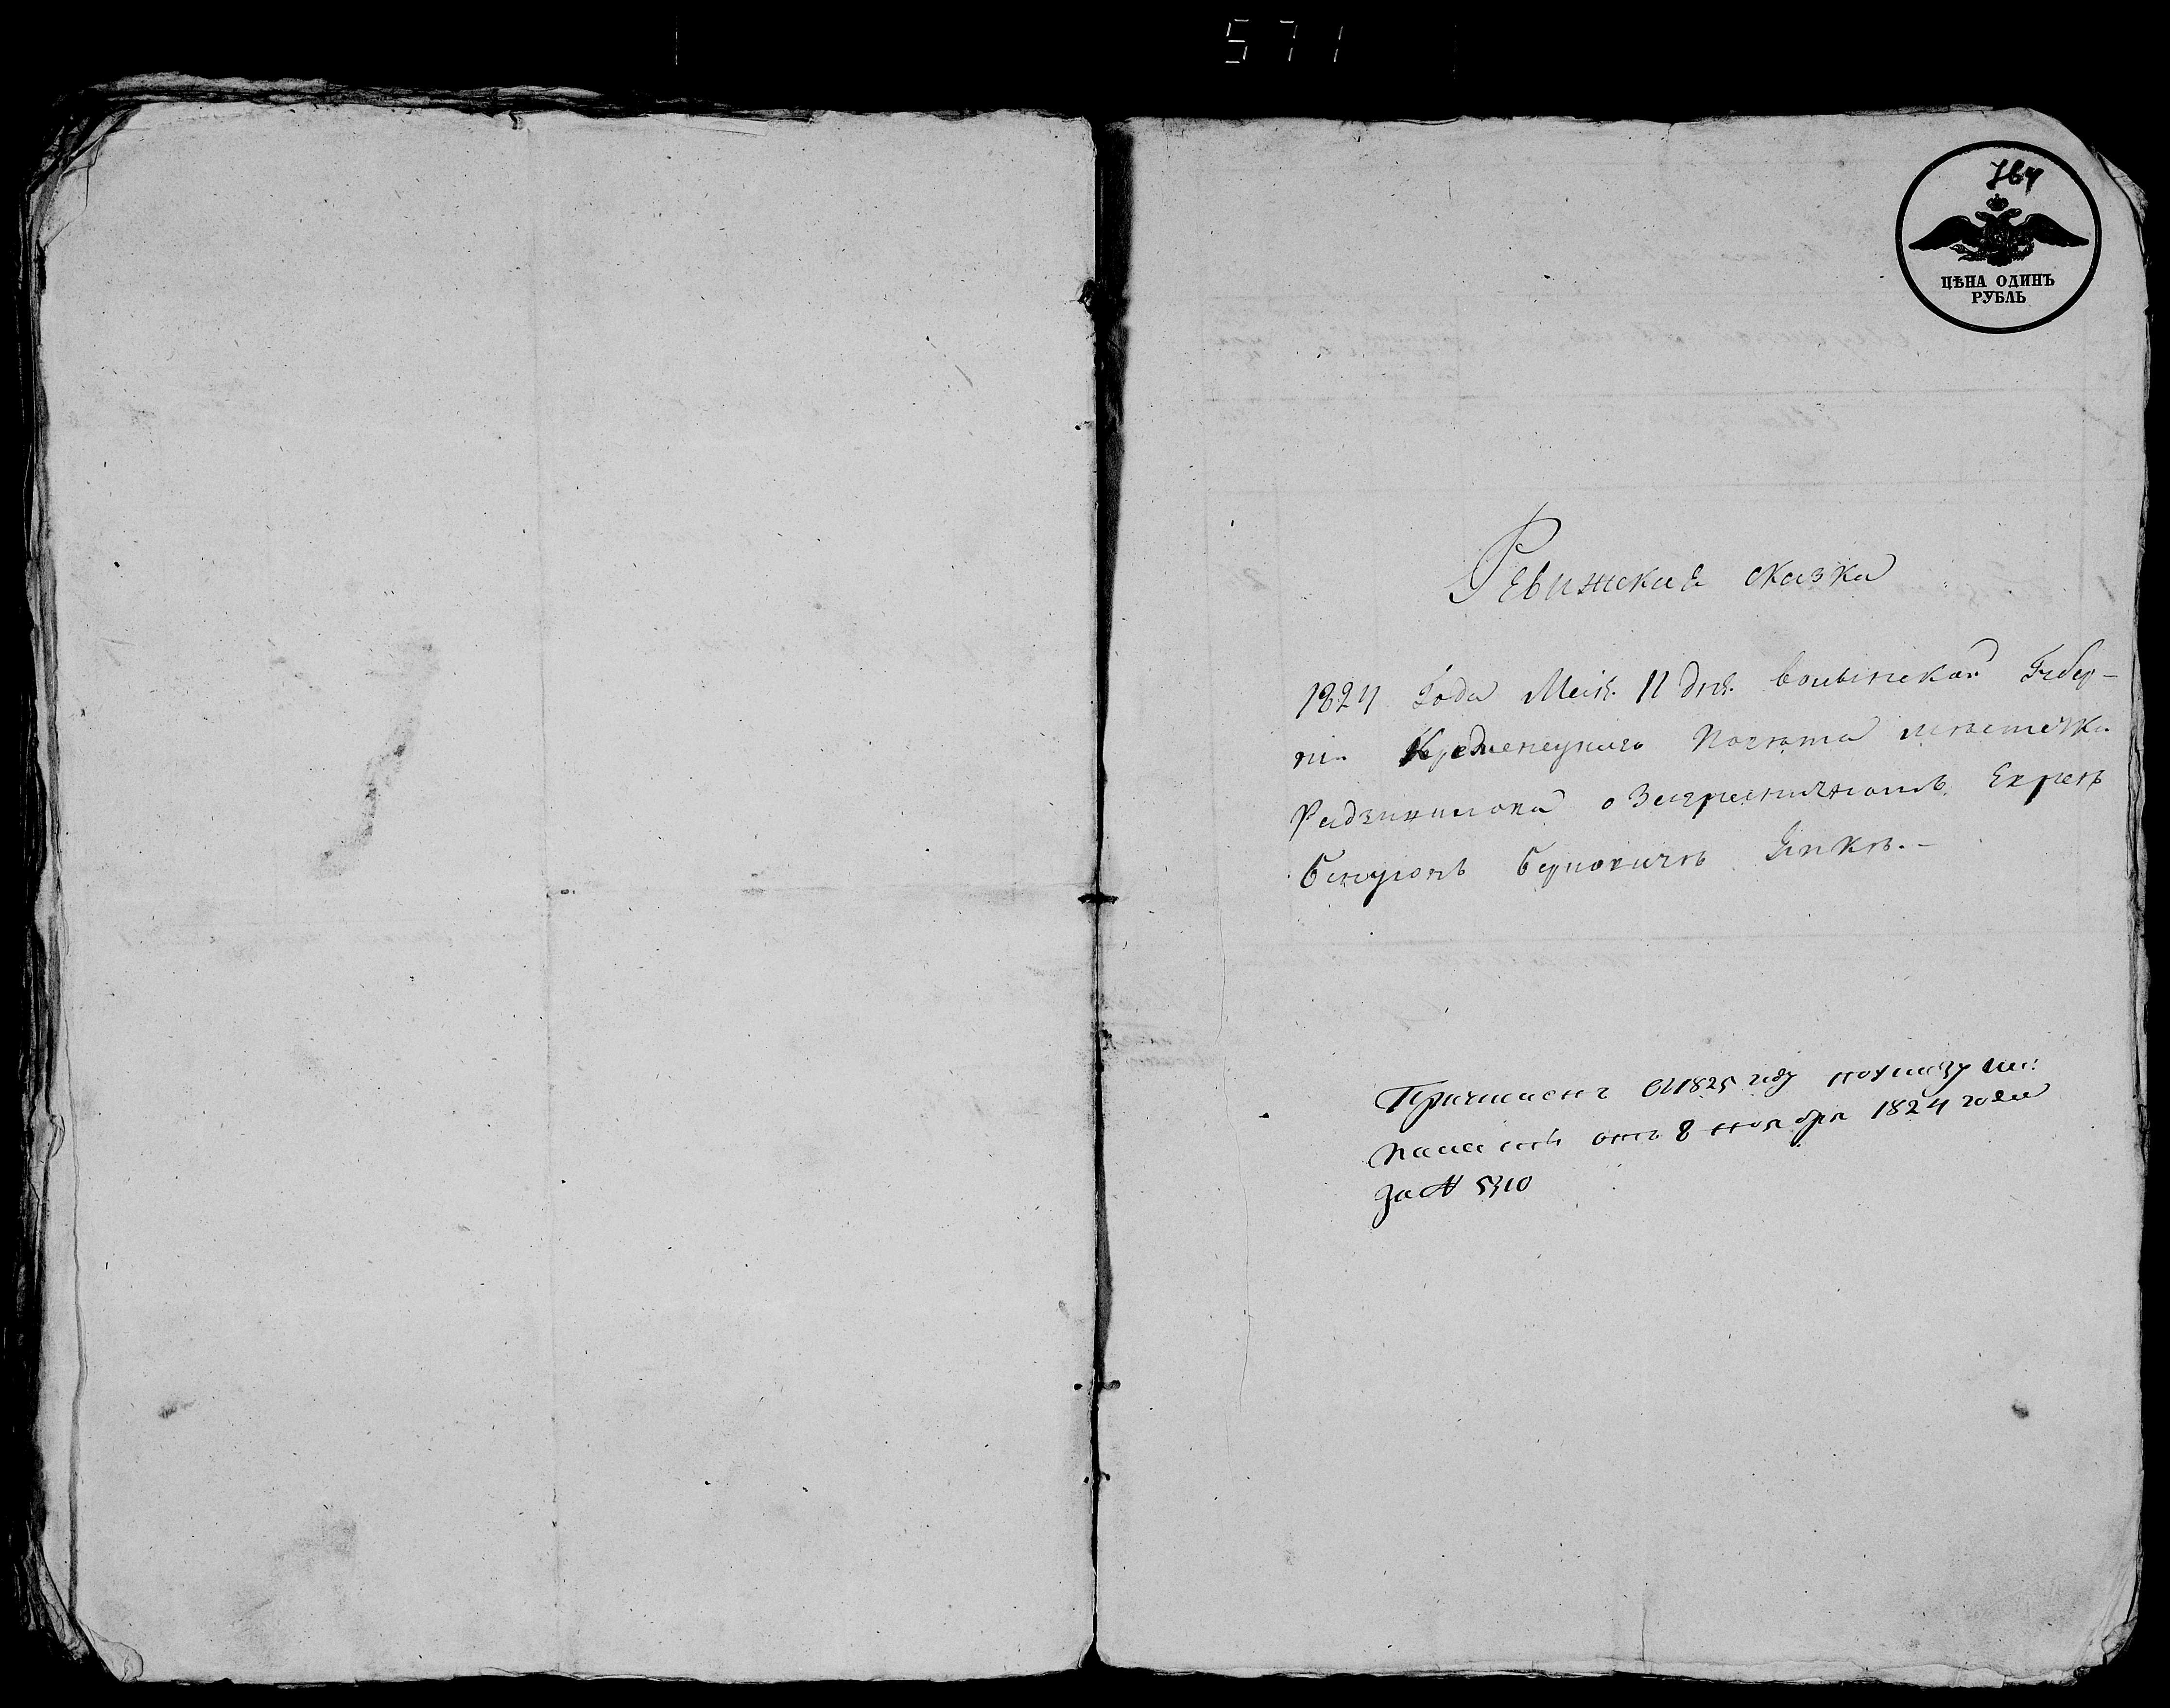 571
764
ЦѢНА ОДИНЪ
РУБЛЬ
Ревижская сказка
1824 Года Мая 11 дня волынской Губер-
нии Кременецкаго Повѣта мѣстечка
Радзивилова о Заграничномъ Евреѣ
Берковичѣ
Причисленъ съ 1825 году по указу
палаты отъ 8 ноября 1824 года
за № 5310